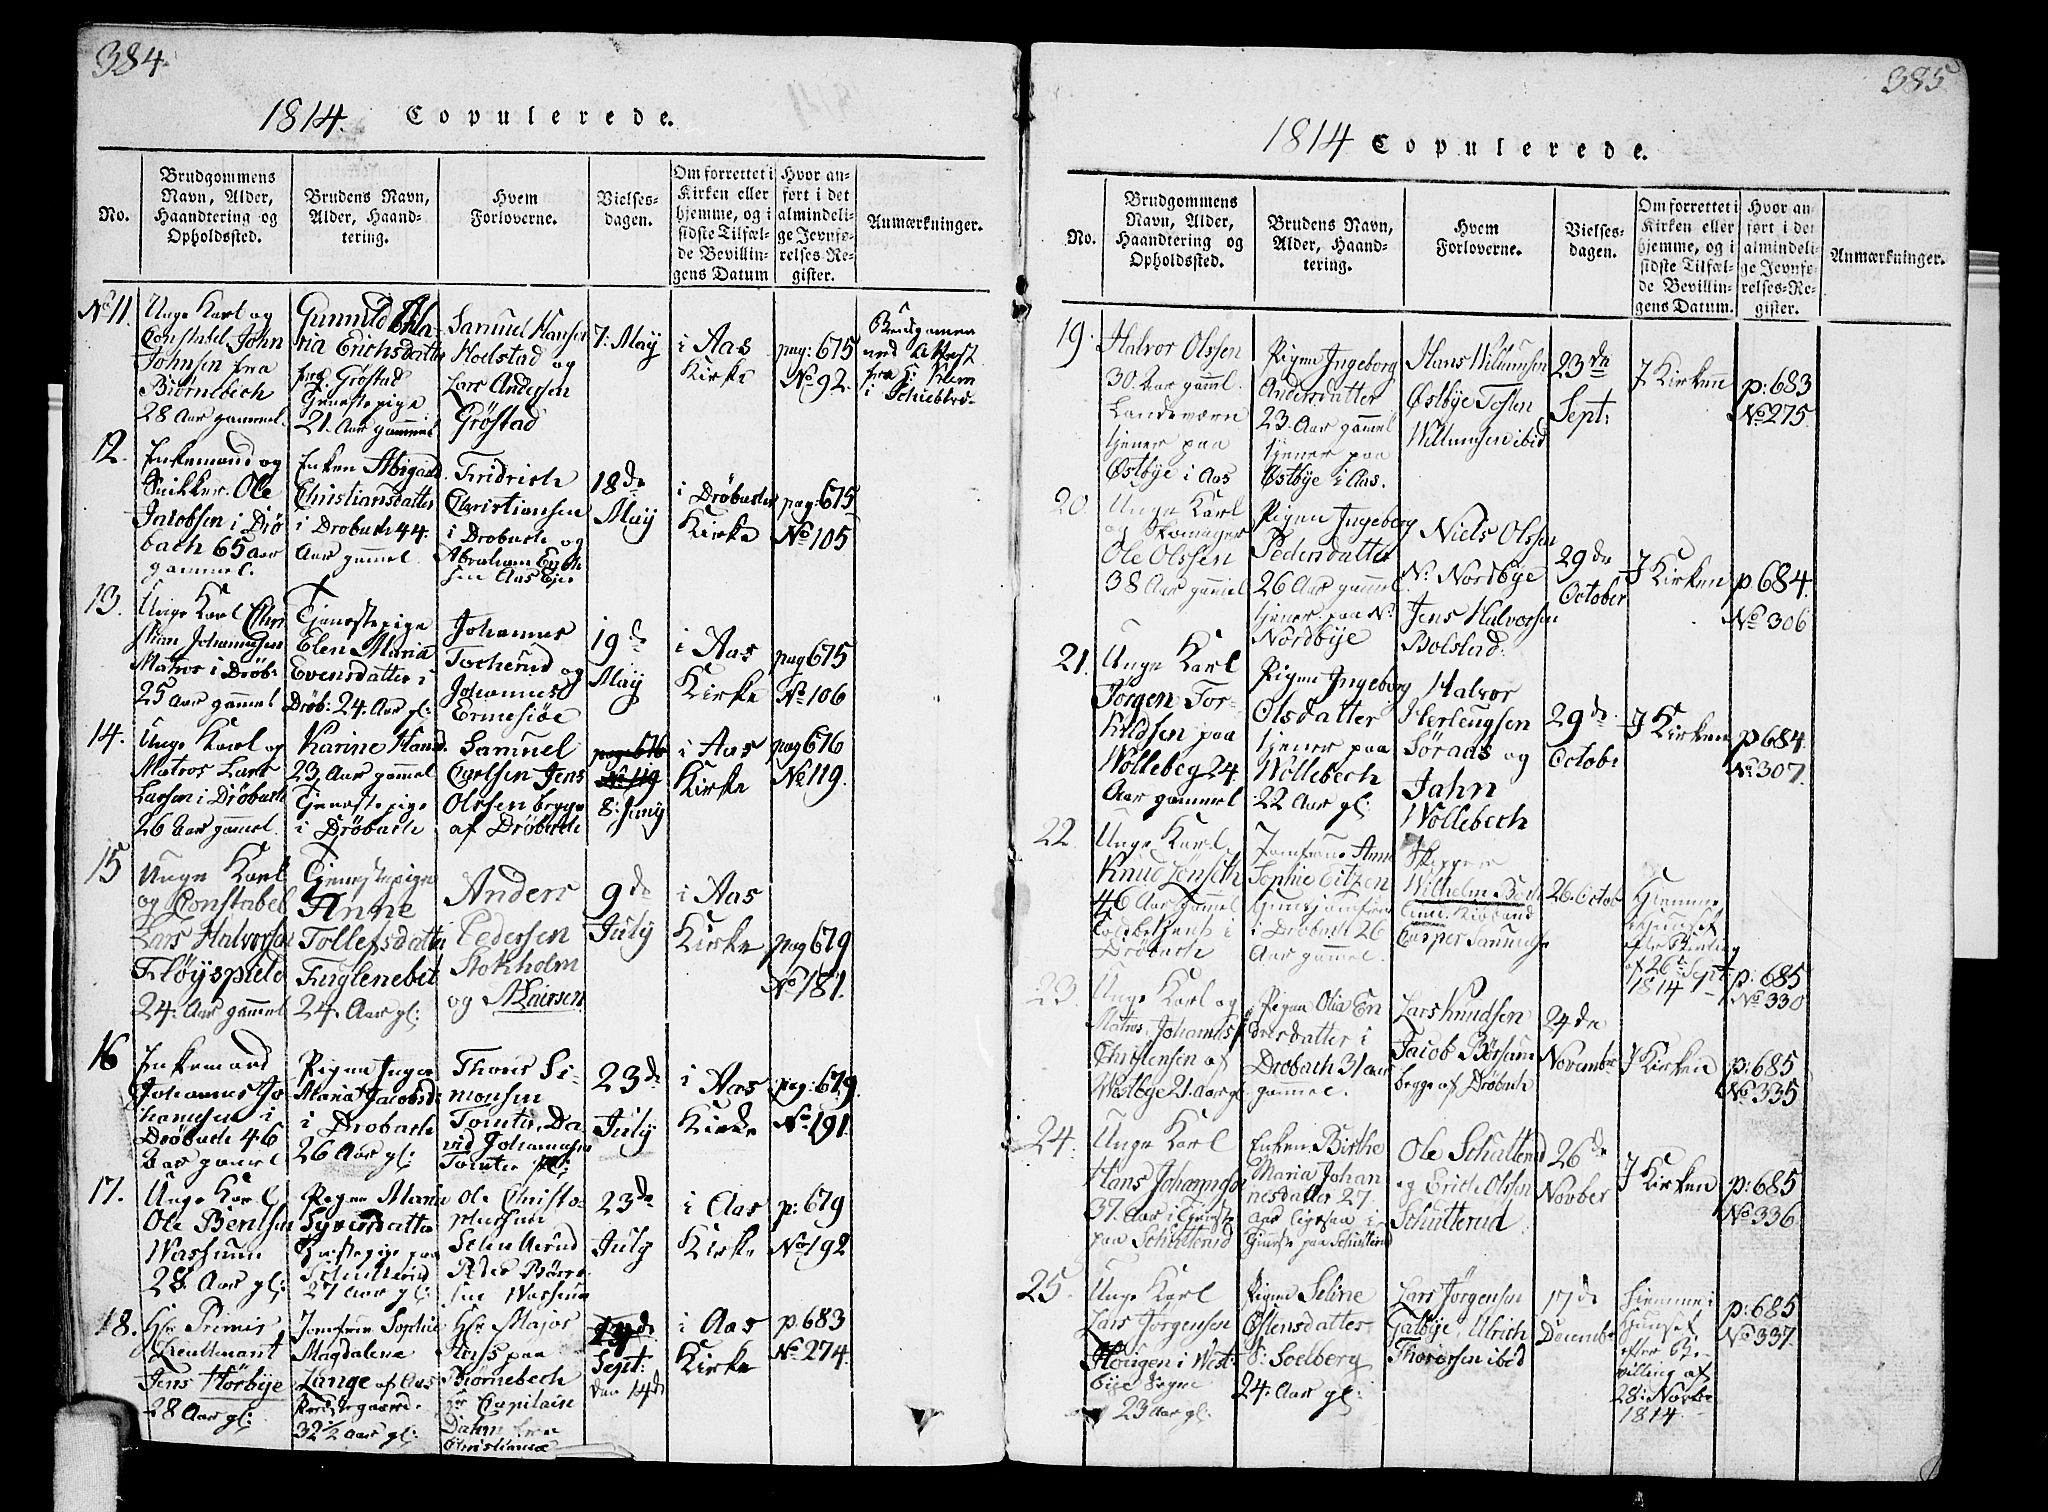 384.
1814. Copulerede.
No.
Brudgommens
Navn, Alder,
Haandtering og
Opholdssted.
Brudens Navn,
Alder, Haand-
tering.
Hvem
Forloverne.
Vielses-
dagen.
Om forrettet i
Kirken eller
hjemme, og i
sidste Tilfæl-
de Bevillin-
gens Datum
Hvor an-
ført i det
almindeli-
ge Jevnfø-
relses-Re-
gister.
Anmærkninger.
No 11.
Unge Karl og
Constabel John
Johnsen fra
Biørnebech
28 Aar gammel.
Gunnild Ma-
ria Erichsdatter
Grøstad
Tjenestepige
21. Aar gammel
Samuel Hansen
Holstad og
Lars Andersen
Grøstad
7: May
i Aas
Kirke
pag: 675
No 92.
Brudgomen
med Attest
fra
i
12.
Enkemand og
Snikker Ole
Jacobsen i Drö
bach 65 Aar
gammel.
Enken Abigael
Christiansdatter
i Drobach 44.
Aar gammel
Fridrich
Christiansen
i Drobach og
Abraham Erich
sen Aas Eje
18de
May
i Dröbach
Kirke
pag: 675
No 105
13.
Unge Karl Chri
stian Johannesen
Matros i Dröb:
25 Aar gammel
Tjenestepige
Elen Maria
Evensdatter i
Dröb: 24. Aar gl:
Johannes
Tocherud og
Johannes
Ermesiöe
19de
May
i Aas
Kirke
pag 675
No 106
14.
Unge Karl og
Matros Lars
Larsen i Dröbach
26 Aar gammel.
Karine Hansd.
23 Aar gammel
Tjenestepige
i Dröbach
Samuel
Carlsen Jens
Olssen begge
af Dröbach
pag 676
No 119
8: Juny
i Aas
Kirke
pag 676
No 119.
15
Unge Karl
og Constabel
Lars Halvorsen
Fløyspield
24. Aar gammel
Tjenestepige
Anne
Tollefsdatter
Fuglenebit
24. Aar gl:
Anders
Pedersen
Stokholm
og N Larsen
9de
July
i Aas
Kirke
pag 679
No 181.
16
Enkemand
Johannes Jo
hannesen i
Dröbach 46
Aar gammel
Pigen Inger
Maria Jacobsd:
i Drobach
26 Aar gl:
Thores Si-
monsen
Tomter, Da
vid Johannesen
Tomter
23de
July
i Aas
Kirke
pag: 679.
No 191.
17.
Unge Karl
Ole Bentsen
Wassum
28. Aar gl:
Pigen Maria
Syversdatter
Tjenestepige paa
Schutterud
27 Aar gl:
Ole Christo-
phersen
Schutterud
Peder Börre
sen Wassum
23de
July
i Aas
Kirke
p: 679
No 192
18.
Hr: Premier
Lieutenant
Jens Hörbye
28 Aar gl:
Jomfrue Sophie
Magdalena
Lange af Aas
Prestegaard
32 1/2 Aar gl:
Hr: Major
Huss paa
Biørnebech
Hr Capitain
Dahm fra
Christiania
Sept:
den 14de
i Aas
Kirke
p: 683
No 274.
385
1814 Copulerede.
No.
Brudgommens
Navn, Alder,
Haandtering og
Opholdssted.
Brudens Navn,
Alder, Haand-
tering.
Hvem
Forloverne.
Vielses-
dagen.
Om forrettet i
Kirken eller
hjemme, og i
sidste Tilfæl-
de Bevillin-
gens Datum.
Hvor an-
ført i det
almindeli-
ge Jevnfø-
relses-Re-
gister.
Anmærkninger.
19.
Halvor Olssen
30. Aar gamml.
Landeværn
tjener paa
Østbye i Aas
Pigen Ingeborg
Andersdatter
23. Aar gammel
tjener paa
Østbye i Aas.
Hans Willumsen
Østbye Tosten
Willumsen ibid
23de
Sept:
J Kirken
p: 683
No 275.
20.
Unge Karl
og Skomager
Ole Olssen
38 Aar gammel
Pigen Ingeborg
Pedersdatter
26 Aar gammel
tjener paa N:
Nordbye
Niels Olssen
N: Nordbye
Jens Halvorsen
Bolstad.
29de
October
J Kirken
p 684.
No 306
21.
Unge Karl
Jörgen Tor-
kildsen paa
Wollebeg 24.
Aar gammel
Pigen Ingeborg
Olsdatter
tjener paa
Wollebech
22 Aar gl:
Halvor
Herleugsen
Søraas og
Jahn
Wollebech
29de
October
J Kirken
p 684.
No 307.
22.
Unge Karl
Knud Lönseth
46 Aar gammel
i
Dröbach
Jomfrue Anne
Sophie Eitzen
Huusjomfrue
i Dröbach 26
Aar gammel.
Skipper
Wilhelm
Casper Samuelsen
26. Octob
Hjemme
i Huuset
efter Bevilling
af 26 Sept
1814
p: 685
No 330
23.
Unge Karl og
Matros Johannes
Christensen af
Westbye 21. aar gl
Pigen Olia En
dresdatter i
Drobach 31 aar
gammel.
Lars Knudsen
Jacob Börsum
begge af Dröbach
24de
Novembr
J Kirken
p: 685
No 335
24.
Unge Karl
Hans Johannesen
37. Aar i Tjeneste
paa Schutterud
Enken Birthe
Maria Johan
nesdatter 27.
Aar ligesaa i
Tjeneste paa Schutterud
Ole Schutterud
og Erich Olssen
Schutterud
26de
Novber
J Kirken
p: 685
No 336
25.
Unge Karl
Lars Jörgensen
Hougen i West-
bye Sogn
23 Aar gl:
Pigen Seline
Østensdatter
S: Soelberg
24. Aar gl:
Lars Jörgensen
Galbye, Ulrich
Thoresen ibid
17de
Decembr
hiemme i
Huuset
efter Be-
villing af
28: Novbr
1814.
p: 685
No 337.